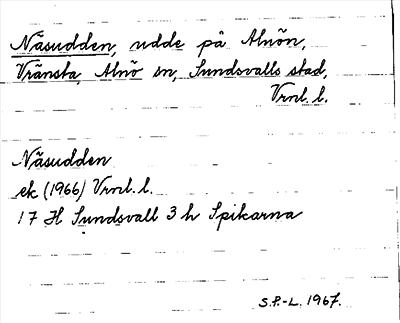 Näsudden, udde på Alnön,
Vränsta, Alnö sn, Sundsvalls stad,
Vrml. l.
Näsudden
ek (1966) Vrml. l.
17 H Sundsvall 3 h Spikarna
S.P.-L. 1967.